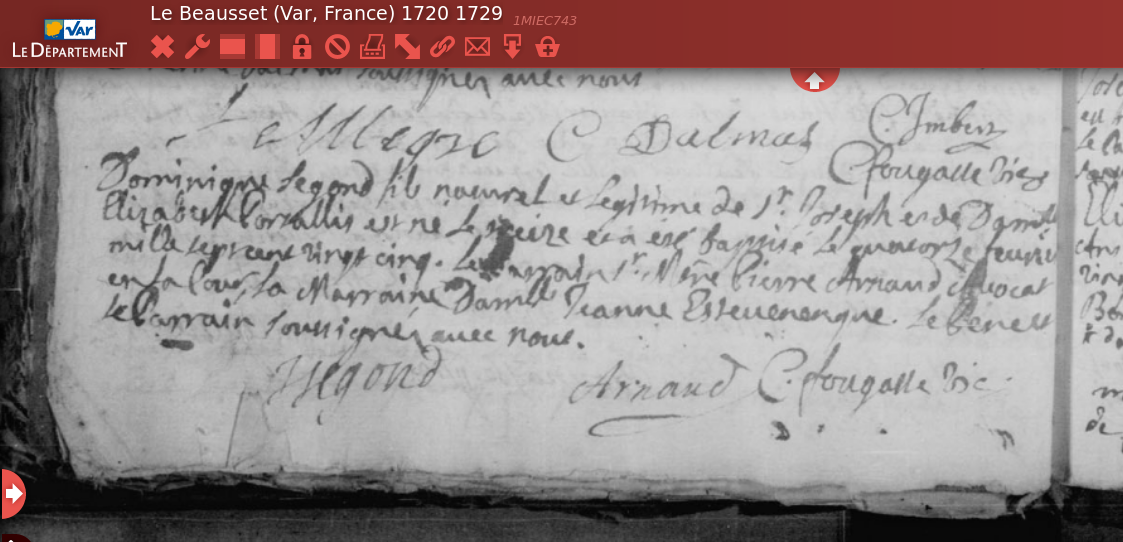 Le Beausset (Var, France) 1720 1729 1MIEC743
VAR
LE DÉPARTEMENT
soussignez avec nous
C. Dalmas C. Imbert
C fougasse vic
Dominique Segond fils naturel et legitime de Sr. Joseph et de Damlle
Elizabeth Portallis est né le treize et a esté baptisé le quatorze feuvrier
mille sept cent vingt cinq. Le parrain Sr. Mtre Pierre Arnaud Advocat
en la Cour, la Marraine Damlle Jeanne Estevenenque. Le pere et
le parrain soussignez avec nous.
JSegond Arnaud C. fougasse vic